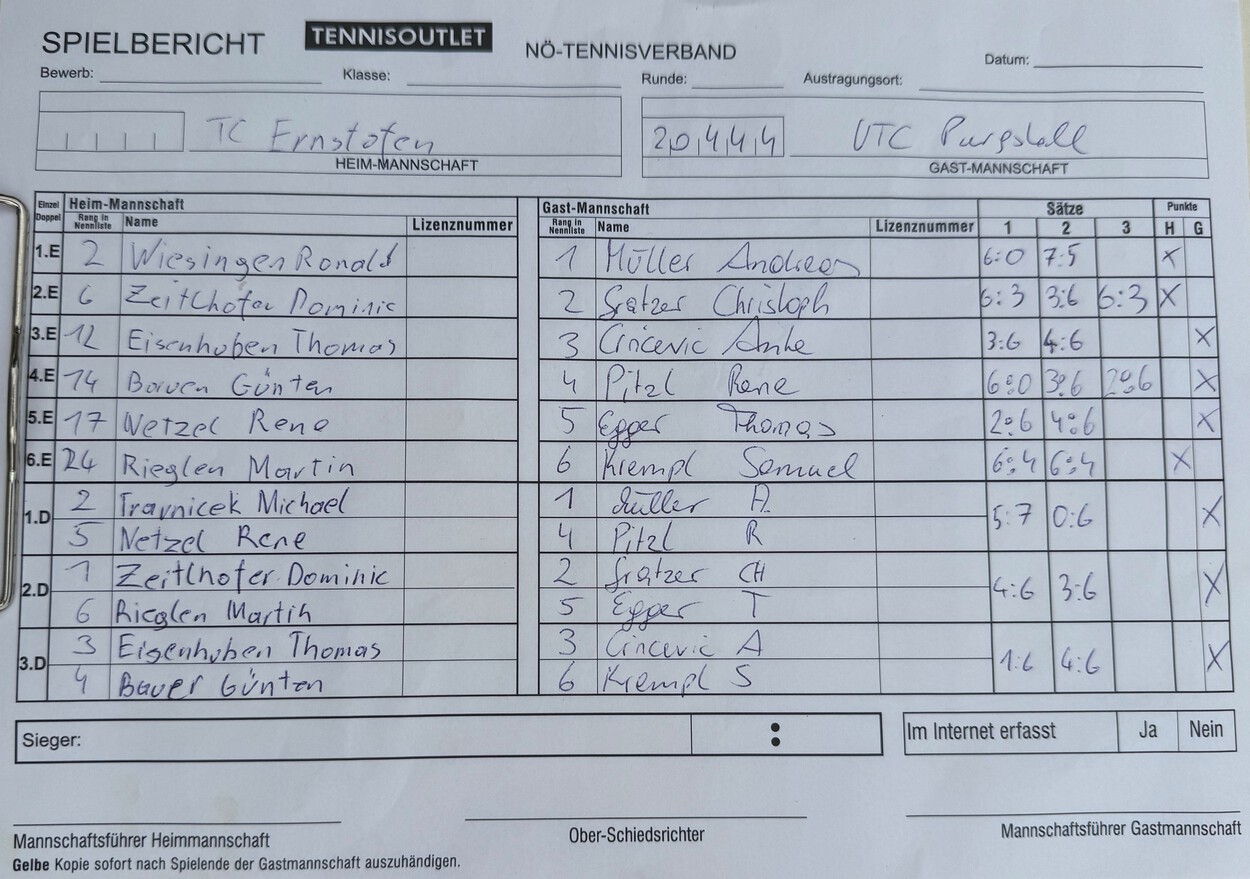 SPIELBERICHT TENNISOUTLET NÖ-TENNISVERBAND
Bewerb: Klasse: Runde: Austragungsort: Datum:
TC Ernstofen 20444 UTC Purgstall
HEIM-MANNSCHAFT GAST-MANNSCHAFT
Einzel Doppel Heim-Mannschaft Gast-Mannschaft Sätze Punkte
Rang in Nennliste Name Lizenznummer Rang in Nennliste Name Lizenznummer 1 2 3 H G
1.E 2 Wiesinger Ronald 1 Müller Andreas 6:0 7:5 X
2.E 6 Zeitlhofer Dominic 2 Gratzer Christoph 6:3 3:6 6:3 X
3.E 12 Eisenhuben Thomas 3 Cincevic Anke 3:6 4:6 X
4.E 14 Bauer Günter 4 Pitzl Rene 6:0 3:6 2:6 X
5.E 17 Netzel Rene 5 Egger Thomas 2:6 4:6 X
6.E 24 Riegler Martin 6 Krempl Samuel 6:4 6:4 X
1.D 2 Travnicek Michael 1 Müller A. 5:7 0:6 X
5 Netzel Rene 4 Pitzl R
2.D 1 Zeitlhofer Dominic 2 Gratzer CH 4:6 3:6 X
6 Riegler Martin 5 Egger T
3.D 3 Eigenhuben Thomas 3 Cincevic A 1:6 4:6 X
4 Bauer Günter 6 Krempl S
Sieger: : Im Internet erfasst Ja Nein
Mannschaftsführer Heimmannschaft Ober-Schiedsrichter Mannschaftsführer Gastmannschaft
Gelbe Kopie sofort nach Spielende der Gastmannschaft auszuhändigen.